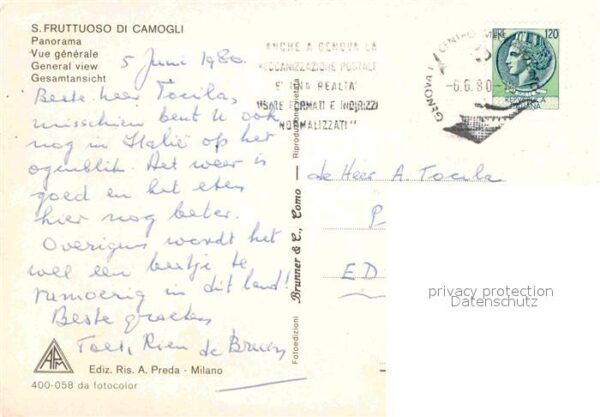 S. FRUTTUOSO DI CAMOGLI
Panorama
Vue générale
General view
Gesamtansicht
5 Juni 1980.
Beste heer Tocila,
misschien bent u ook
nog in Italië op het
ogenblik. Het weer is
goed en het eten
hier nog beter.
Overigens wordt het
wel een beetje te
rumoerig in dit land!
Beste groeten
Rien de
Ediz. Ris. A. Preda - Milano
400-058 da fotocolor
Fotoedizioni Brunner & C., Como — Riproduzione vietata
ANCHE A GENOVA LA
MECCANIZZAZIONE POSTALE
E' UNA REALTA'
USATE FORMATI E INDIRIZZI
NORMALIZZATI"
GENOVA
-6.6.80-
120
de Heer A. Tocila
P
ED
privacy protection
Datenschutz